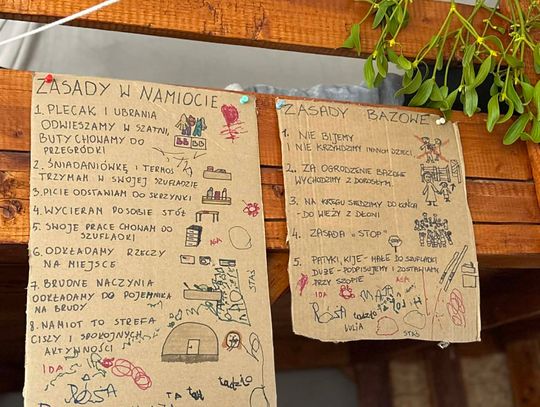 ZASADY W NAMIOCIE
1. PLECAK I UBRANIA
ODWIESZAMY W SZATNI,
BUTY CHOWAMY DO
PRZEGRÓDKI
2. ŚNIADANIÓWKĘ I TERMOS
TRZYMAM W SWOJEJ SZUFLADZIE
3. PICIE ODSTAWIAM DO SKRZYNKI
4. WYCIERAM PO SOBIE STÓŁ
5. SWOJE PRACE CHOWAM DO
SZUFLADKI
6. ODKŁADAMY RZECZY
NA MIEJSCE
7. BRUDNE NACZYNIA
ODKŁADAMY DO POJEMNIKA
NA BRUDY
8. NAMIOT TO STREFA
CISZY I SPOKOJNYCH
AKTYWNOŚCI
ASA
STAŚ
IDA
tadzio
ZASADY BAZOWE
1. NIE BIJEMY
I NIE KRZYWDZIMY INNYCH DZIECI
2. ZA OGRODZENIE BAZOWE
WYCHODZIMY Z DOROSŁYM
3. NA KRĘGU SIEDZIMY DO KOŃCA
- DO WIEŻY Z DŁONI
4. ZASADA "STOP"
STOP
5. PATYKI, KIJE - MAŁE DO SZUFLADKI
DUŻE - PODPISUJEMY I ZOSTAWIAMY
PRZY SZOPIE
IDA
ASA
tadzio
Lucia
STAŚ